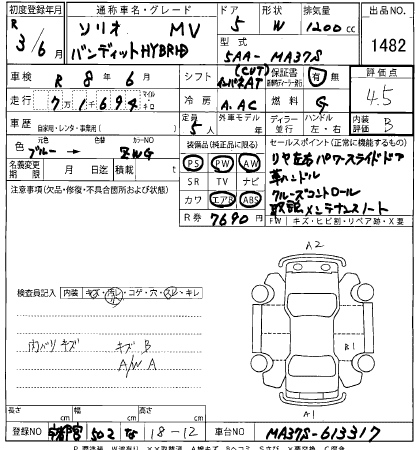 初度登録年月 通称車名・グレード ドア 形状 排気量 出品NO
R 3/6月 ソリオ MV 5 W 1200cc 1482
バンディットHYBRID 型式 5AA- MA37S
車検 R 8年 6月 シフト (CVT) AT 保証書 有 無 燃料 評価点
走行 71694 マイル キロ 冷房 A.AC 燃料 G 4.5
車歴 自家用・レンタ・事業用( ) 定員 5人 外車モデル 年 ディーラー 並行 ハンドル 左・右 内装評価 B
色 元色 ブルー → 色替 カラーNO ZWG
装備品(純正品に限る) セールスポイント(正常に機能するもの)
名義変更期限 月 日 積載 t
PS PW AW リヤ左右パワースライドドア
注意事項(欠品・修復・不具合箇所および状態) SR TV ナビ 革ハンドル
カワ エアB ABS クルーズコントロール
R券 7690円 取説 メンテナンスノート
FW キズ・ヒビ割・リペア跡・X要
A2
検査員記入 内装 キズ・汚レ・コゲ・穴・スレ・キレ
内バリキズ キズ B
A/W A
B1
A1
長さ cm 幅 cm 高さ cm
登録NO 宇都宮 502 な 18-12 車台NO MA37S-613317